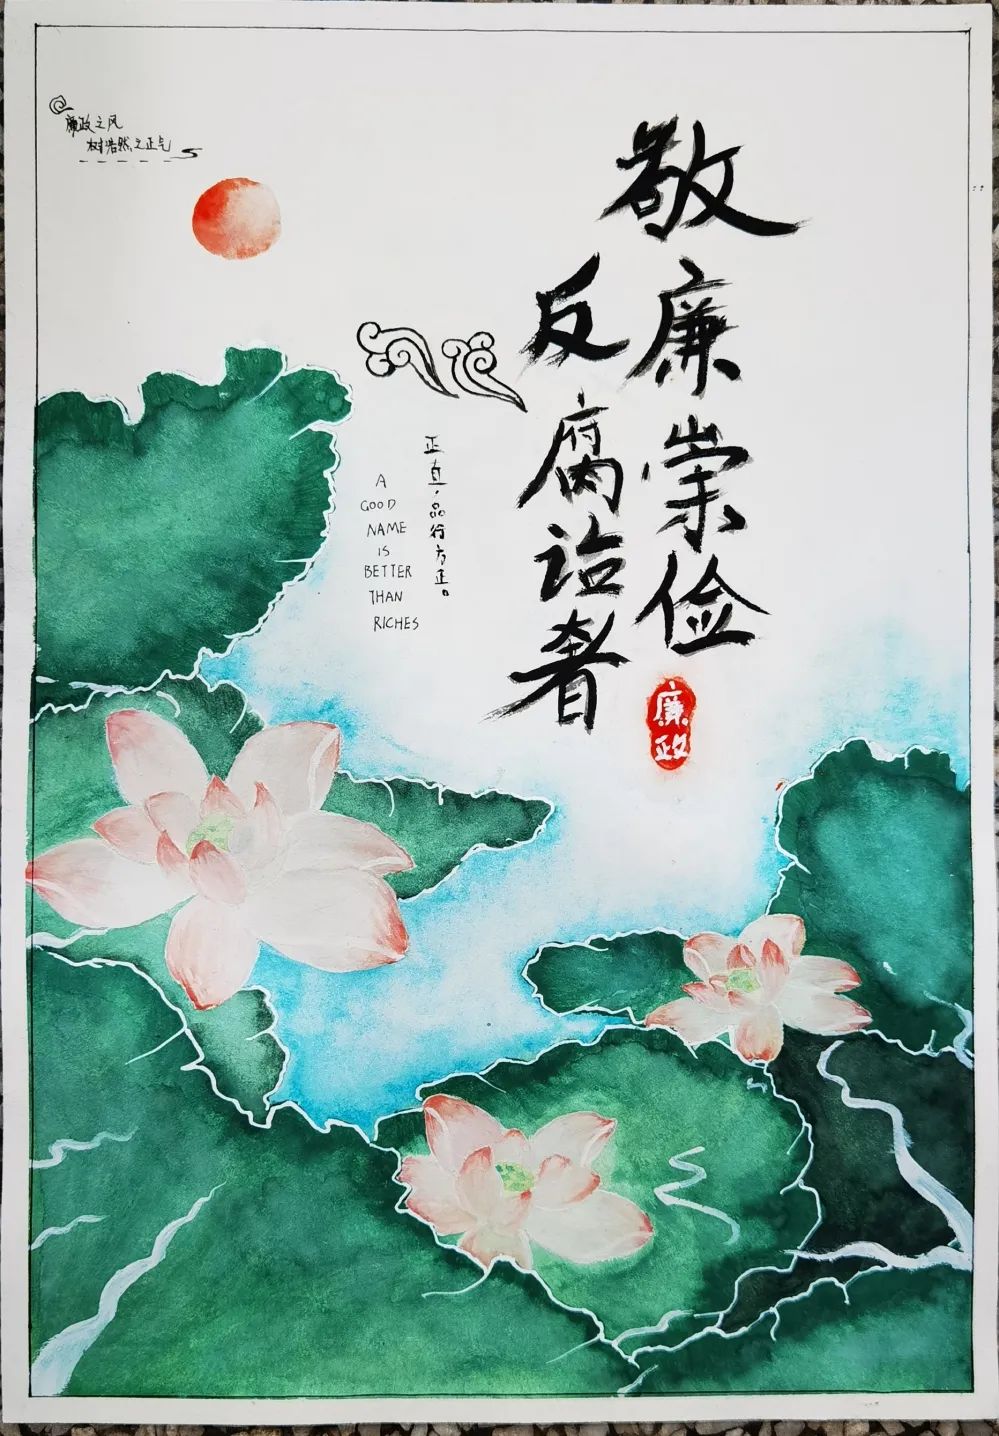 廉政之风
树浩然之正气
敬廉崇俭
反腐治奢
廉政
正直,品行方正。
A
GOOD
NAME
IS
BETTER
THAN
RICHES